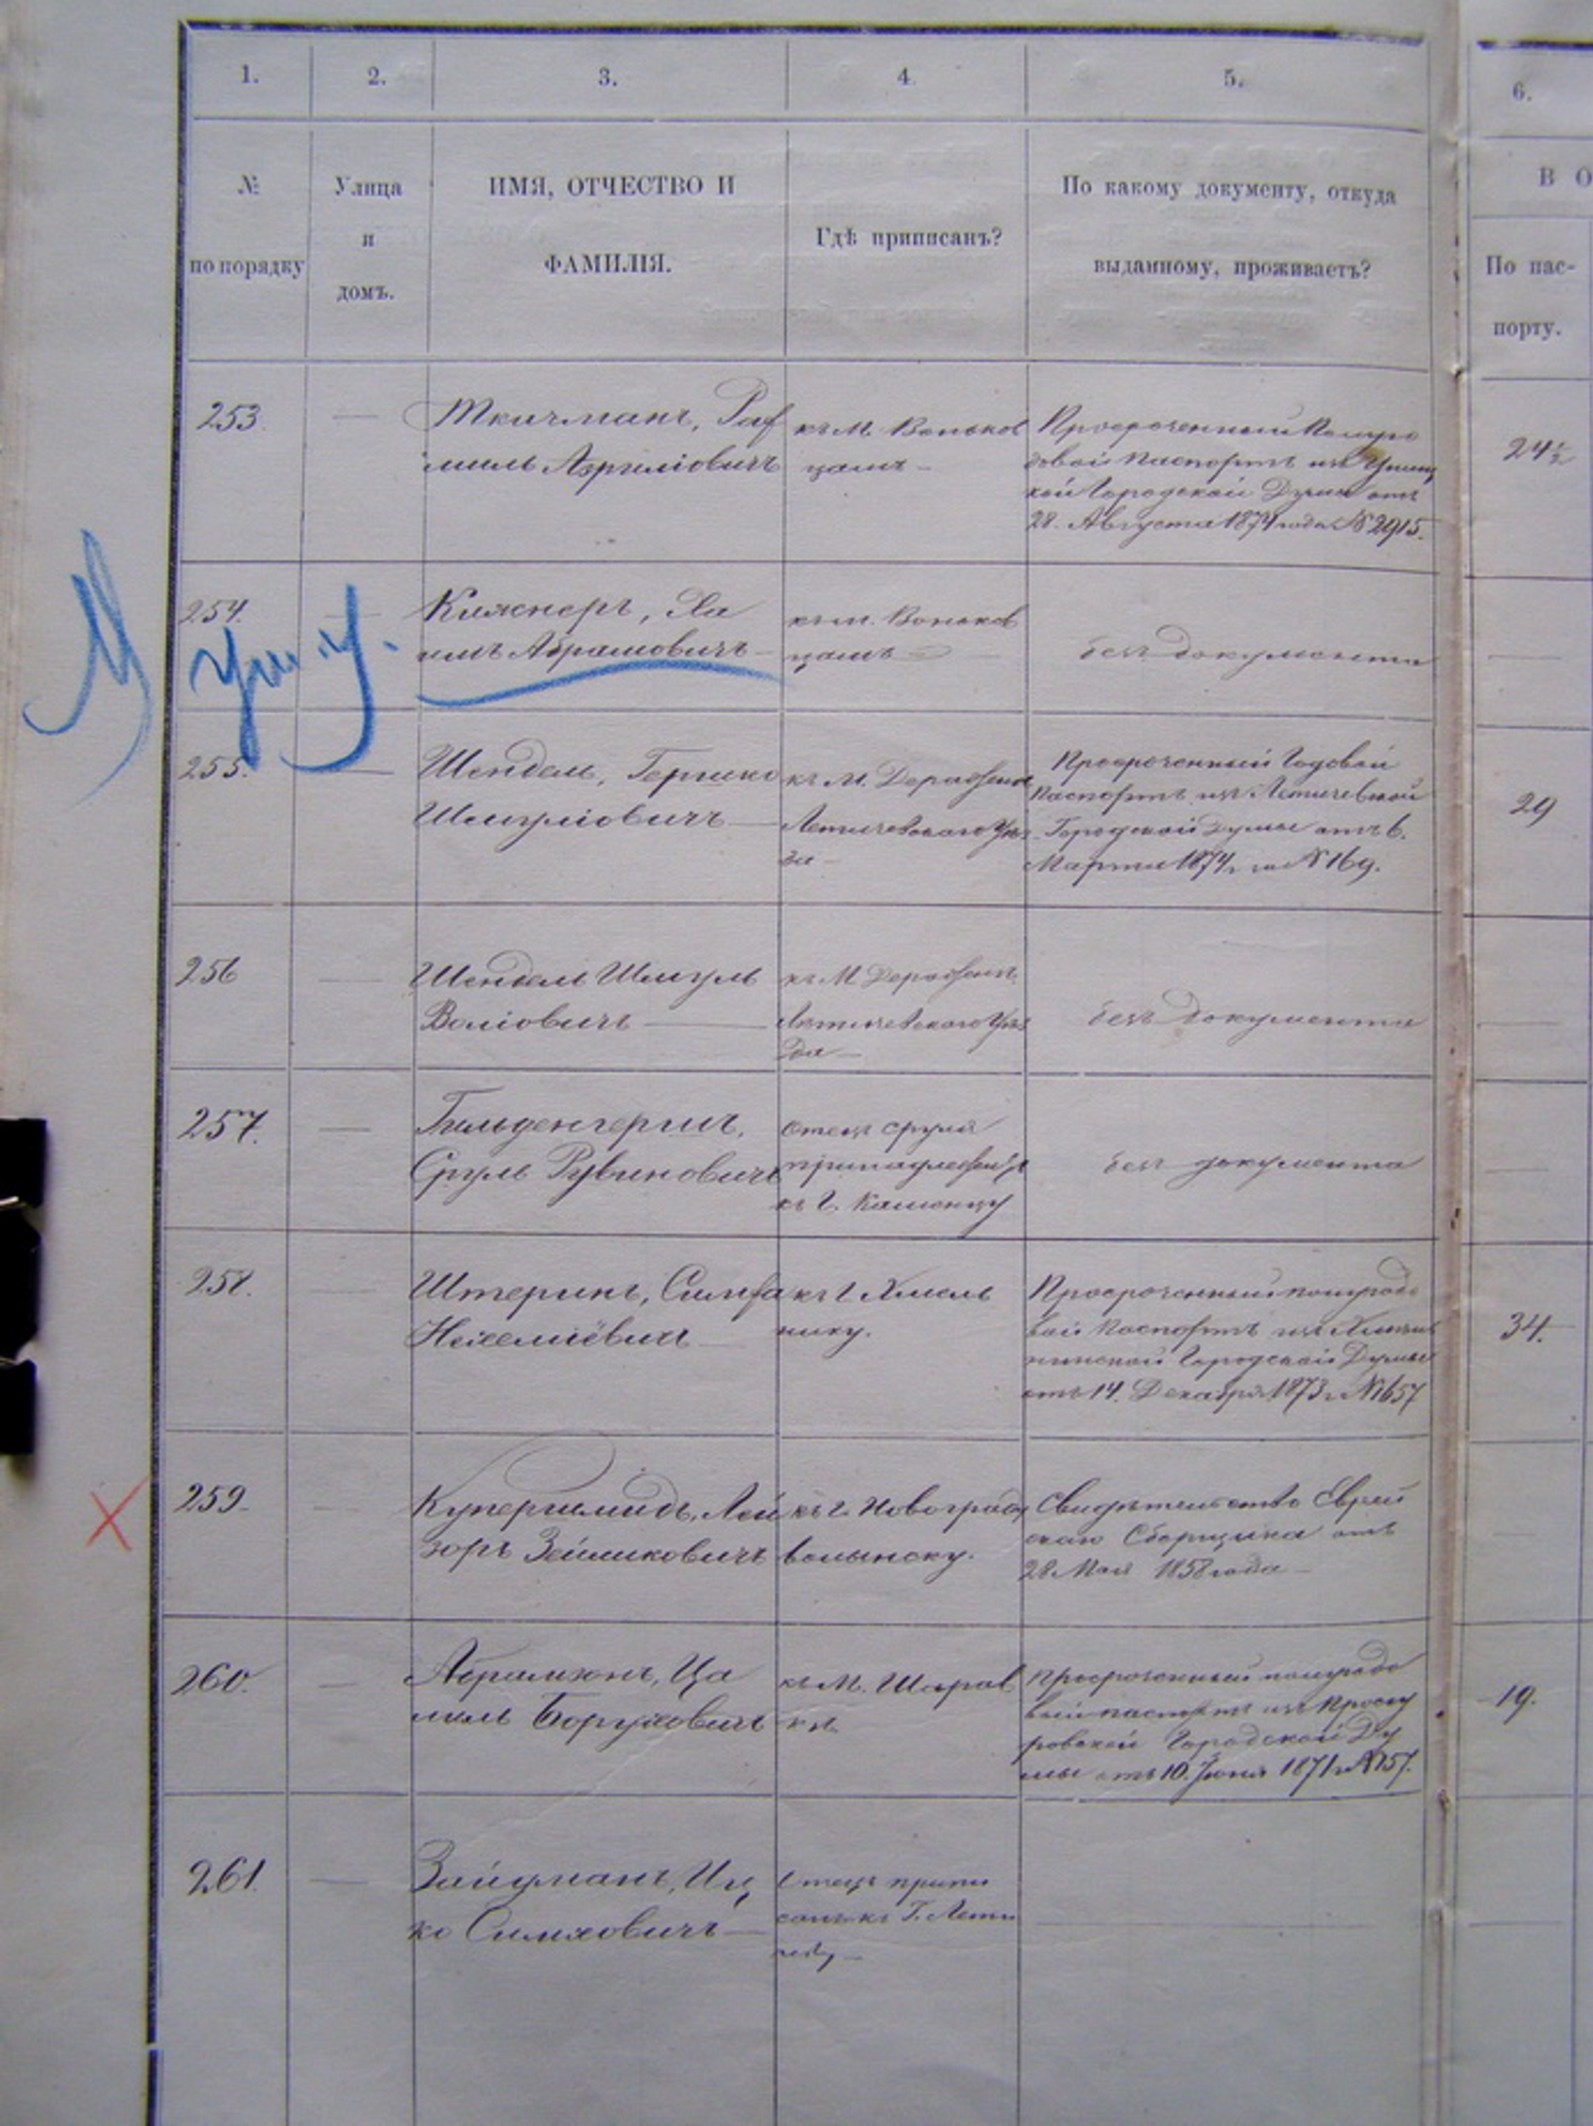 1.
2.
3.
4.
5.
6.
№
по порядку
Улица
и
домъ.
ИМЯ, ОТЧЕСТВО И
ФАМИЛІЯ.
Гдѣ приписанъ?
По какому документу, откуда
выданному, проживаетъ?
В О
По пас-
порту.
253.
Ткачманъ, Раф
маиль
къ М. Воньков
цамъ
Просроченный Полуго
довой Паспортъ изъ Ушиц
кой Городской Думы отъ
28. Августа 1874 года № 2915.
24½
254.
Кижнеръ, Ха
имъ Абрамовичъ
къ м. Воньков
цамъ
безъ документа
М
Уш. У.
255.
Шендель, Гершко
Шмуліовичъ
къ М. Деражня
Летичевского Уѣз
да
Просроченный Годовой
Паспортъ изъ Летичевской
Городской Думы отъ 6.
Марта 1874 г. за № 169.
29
256
Шендель Шмуль
Воліовичъ
къ М. Деражнѣ
Летичевского Уѣз
да
безъ документа
257.
Гильденгершъ,
Сруль Рувиновичъ
Отецъ Сруля
принадлежитъ
къ Г. Каменцу
безъ документа
258.
Штеринъ, Симха
Нехеміевичъ
къ Г. Хмель
нику.
Просроченный полугодо
вой Паспортъ изъ Хмель
никской Городской Думы
отъ 14. Декабря 1873 г. № 1657
34.
259.
Купершмидъ, Лей
зоръ Зейликовичъ
къ г. Новоградъ
волынску.
Свидѣтельство Еврей
скаго Сборщика отъ
28 Мая 1858 года
260.
Абрамзонъ, Ца
лель Боруховичъ
къ М. Шарав
кѣ
просроченный полугодо
вый паспортъ изъ Проску
ровской Городской Ду
мы отъ 10. Іюня 1871 г. № 757.
19.
261.
Зайцманъ, Иц
ко Симховичъ
Отецъ припи
санъ къ Г. Лети
чеву